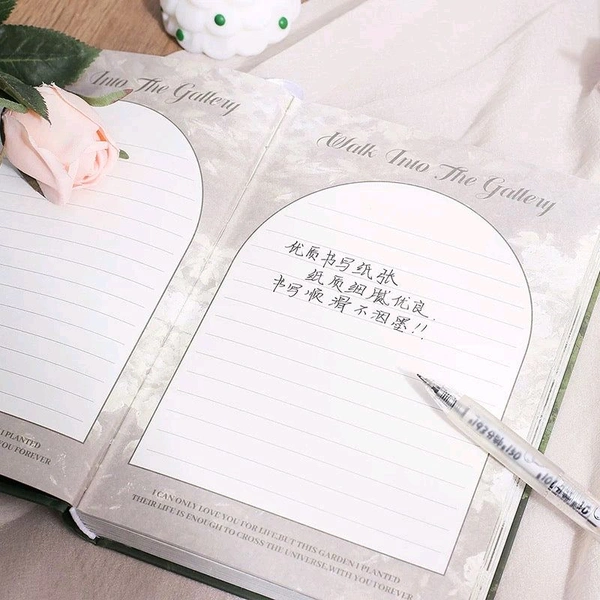 Into The Gallery
I PLANTED
YOU FOREVER
Walk Into The Gallery
优质书写纸张
纸质细腻优良.
书写顺滑不洇墨!!
I CAN ONLY LOVE YOU FOR LIFE, BUT THIS GARDEN I PLANTED
THEIR LIFE IS ENOUGH TO CROSS THE UNIVERSE, WITH YOU FOREVER